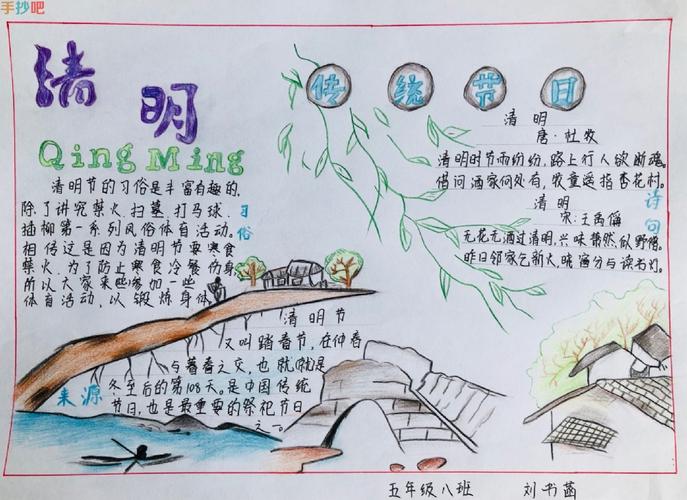 手抄吧
清明
Qing Ming
传统节日
清明
唐·杜牧
清明时节雨纷纷,路上行人欲断魂。
借问酒家何处有,牧童遥指杏花村。
清明
宋:王禹偁
无花无酒过清明,兴味萧然似野僧。
昨日邻家乞新火,晓窗分与读书灯。
诗句
清明节的习俗是丰富有趣的,
除了讲究禁火、扫墓、打马球、
插柳第一系列风俗体育活动。
相传这是因为清明节要寒食
禁火,为了防止寒食冷餐伤身,
所以大家来些参加一些
体育活动,以锻炼身体
习俗
清明节
又叫踏春节,在仲春
与暮春之交,也就就是
冬至后的第108天。是中国传统
节日,也是最重要的祭祀节日
之一。
来源
五年级八班 刘书菡